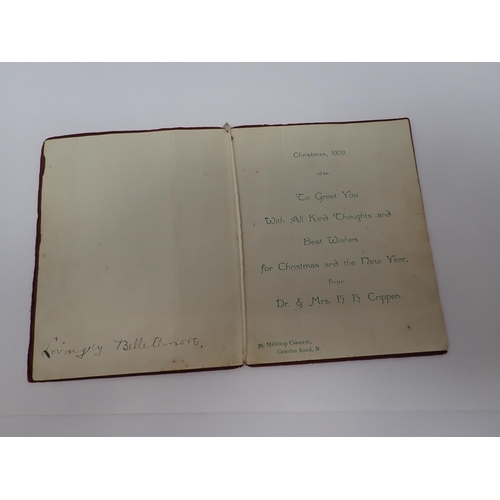 Lovingly Belle Elmore.
Christmas, 1909.
To Greet You
With All Kind Thoughts and
Best Wishes
for Christmas and the New Year,
from
Dr. & Mrs. H H Crippen.
39 Hilldrop Crescent,
Camden Road, N.